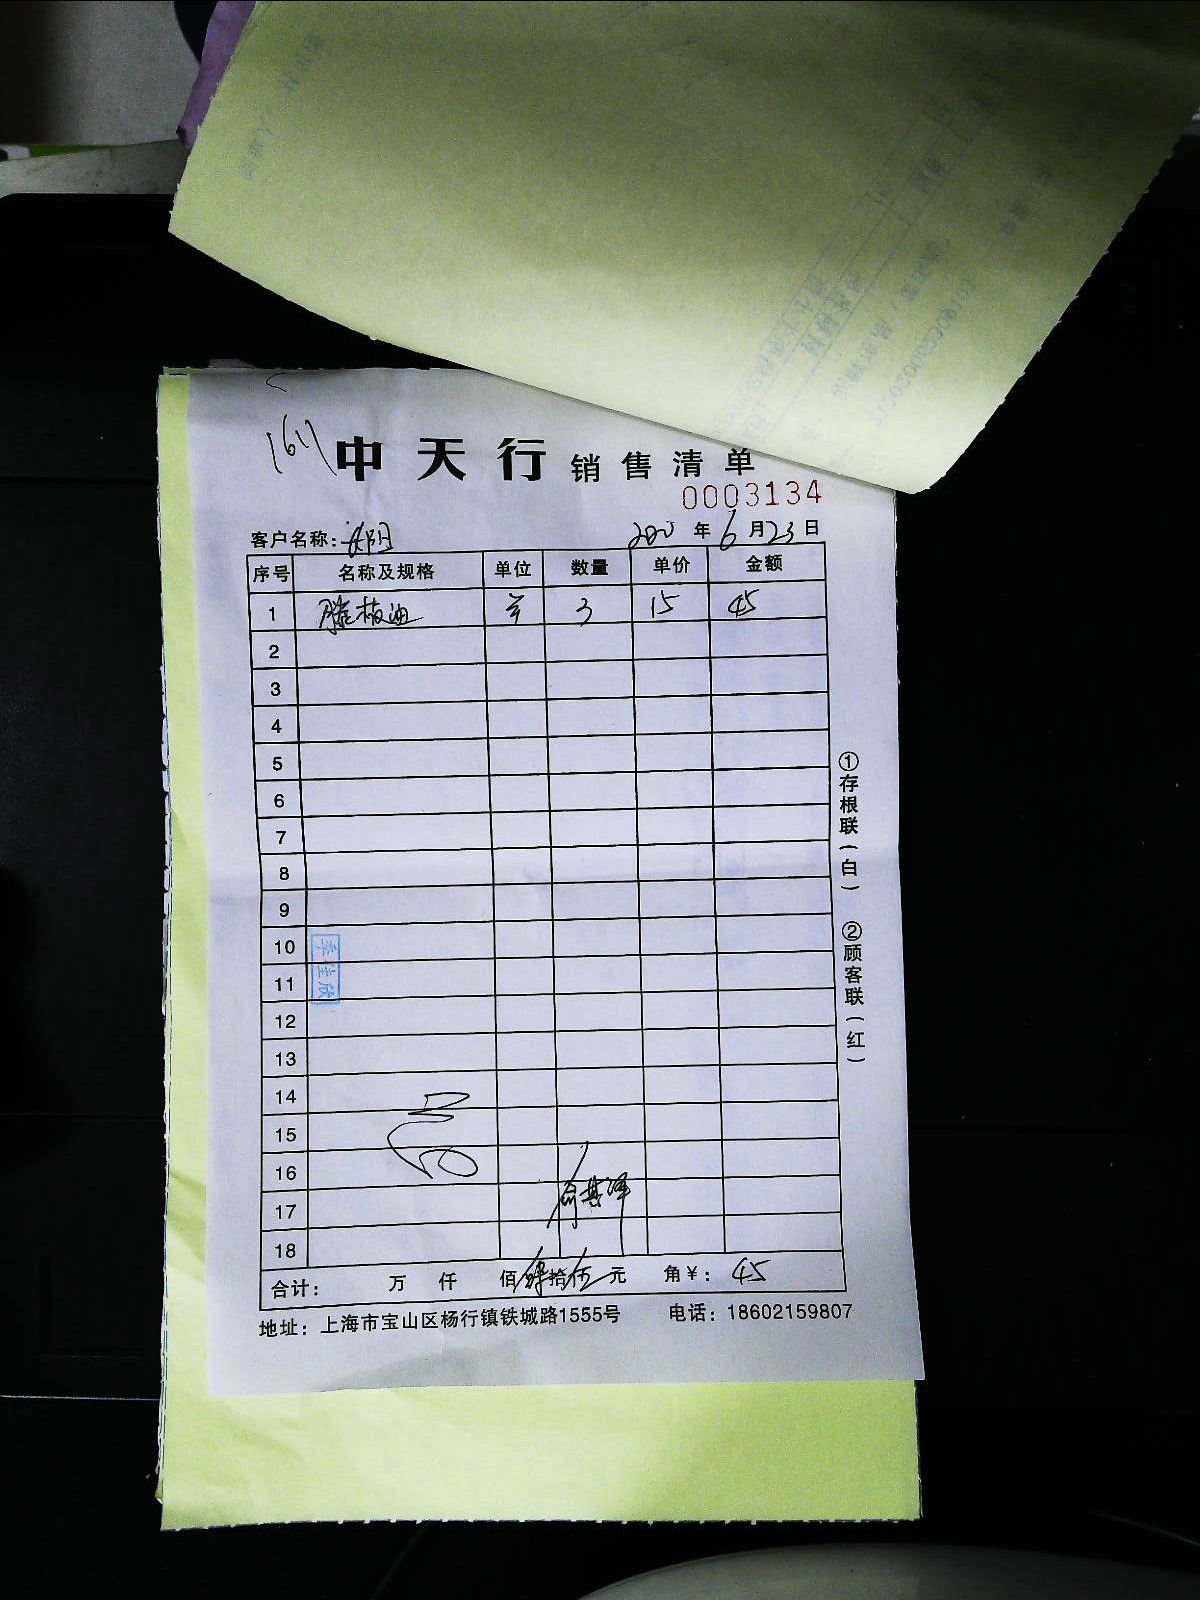 1611
中天行 销售清单
0003134
客户名称: 年6月23日
序号 名称及规格 单位 数量 单价 金额
1 3 15 45
2
3
4
5
6
7
8
9
10
11
李佳欣
12
13
14
15
16
17
18
合计: 万 仟 佰肆拾伍元 角¥: 45
地址: 上海市宝山区杨行镇铁城路1555号 电话: 18602159807
①存根联(白) ②顾客联(红)